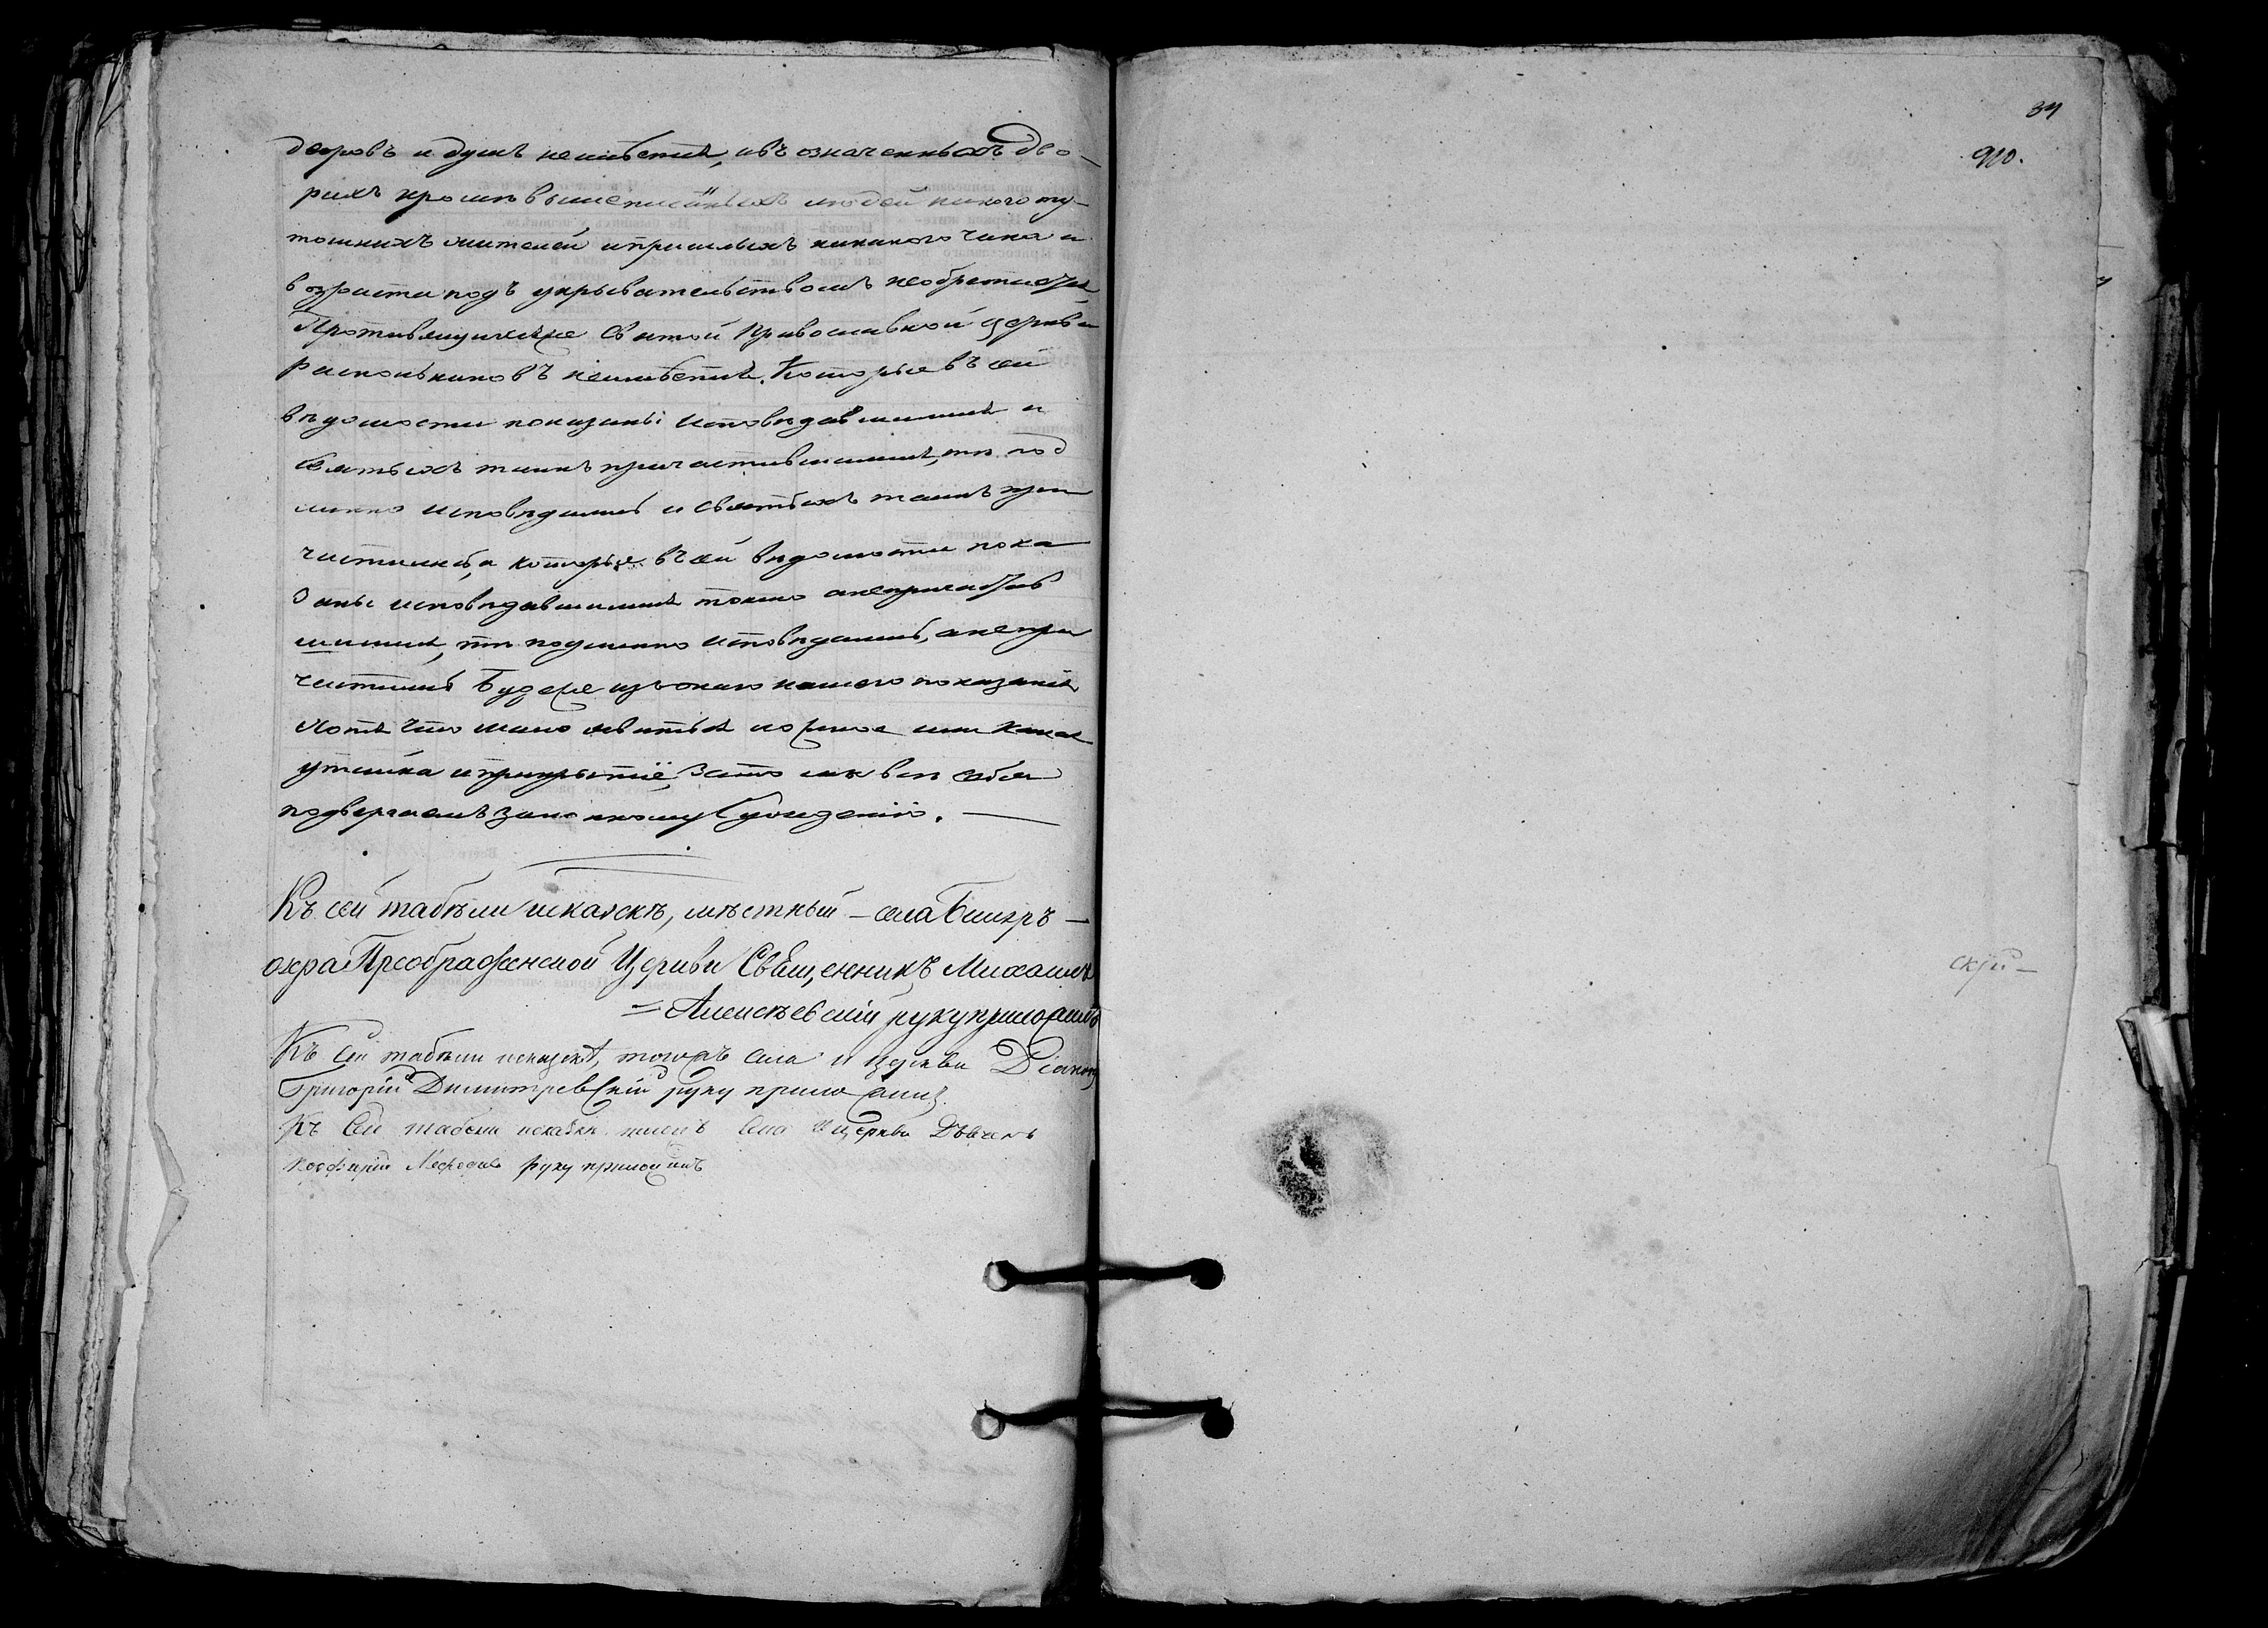 дворовъ и душъ неимѣется, ивъ означенныхъ дво-
рахъ кромѣ вышеписанныхъ людей никого ту-
тошнихъ жителей ипришлыхъ никакого чина и
возраста подъ укрывательствомъ необретается,
Противящихсяже Святой Православной церкви
раскольниковъ неимѣется. Которые въ сей
вѣдомости показаны исповѣдавшимися и
святыхъ таинъ причастившимися, тѣ под
линно исповѣдались и святыхъ таинъ при
частились, а которые въ сей вѣдомости пока
заны исповѣдавшимися токмо анепричастив
шимися, тѣ подлинно исповѣдались, анепри
частились Буде же изъ онаго нашего показанія
хотя что мало явится ложное или какая
утайка иприкрытіе, Зато мы всѣ себя
подвергаемъ законному сужденію. —
Къ сей табѣли исказскѣ, мѣстный – села
охра Преображенской Церкви Священникъ Михаилъ
= Алексѣевскій руку приложилъ
Къ Сей табѣли исказкѣ, тогожъ села и церкви Діаконъ
Григорій Димитревскій руку приложилъ
Къ Сей табели исказки тогожъ села и церкви Дьячекъ
Порфирій руку приложилъ
910.
скій –